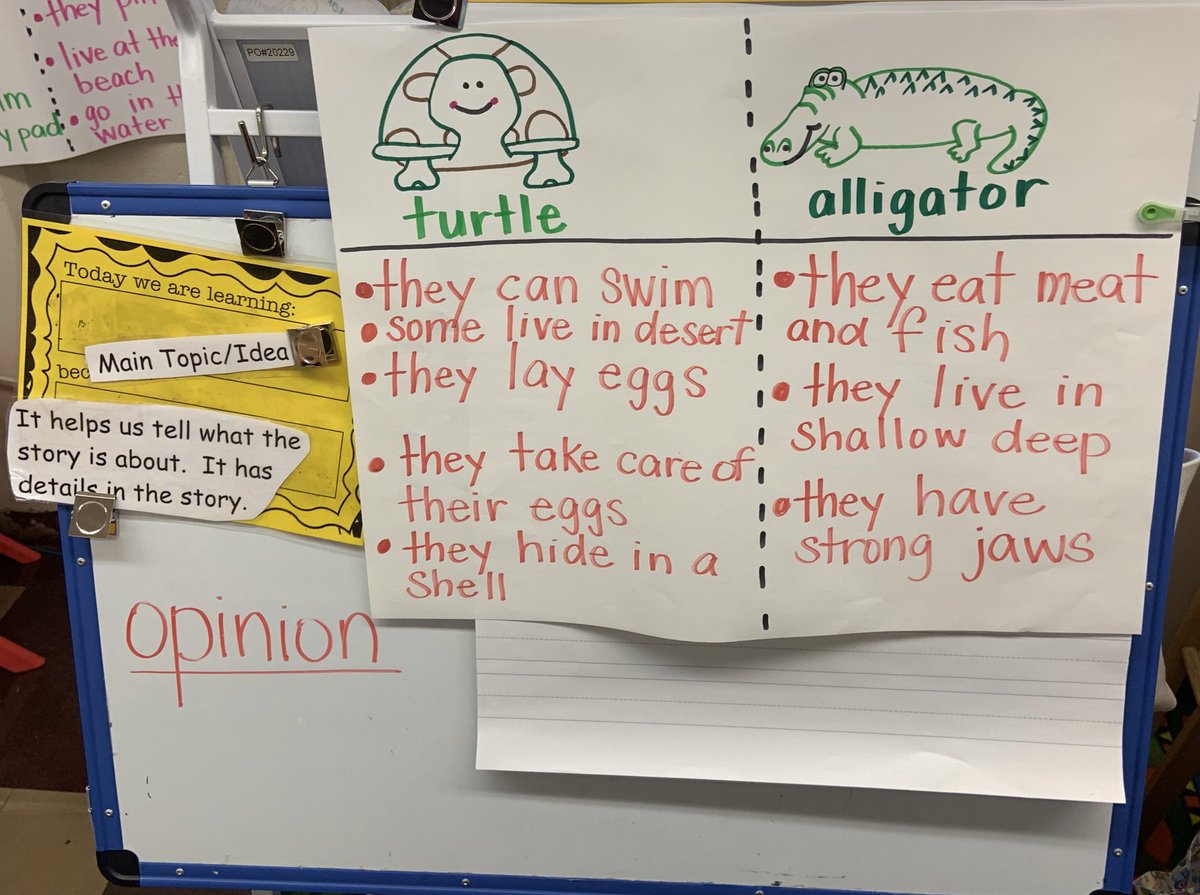 they
• live at the
beach
• go in
water
y pad
PO#20229
turtle
• they can swim
• some live in desert
• they lay eggs
• they take care of
their eggs
• they hide in a
shell
alligator
• they eat meat
and fish
• they live in
shallow deep
• they have
strong jaws
Today we are learning:
Main Topic/Idea
bec
It helps us tell what the
story is about. It has
details in the story.
opinion